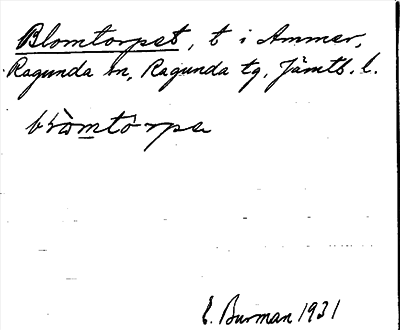 Blomtorpet, t i Ammer,
Ragunda sn, Ragunda tg, Jämtl. l.
E. Burman 1931